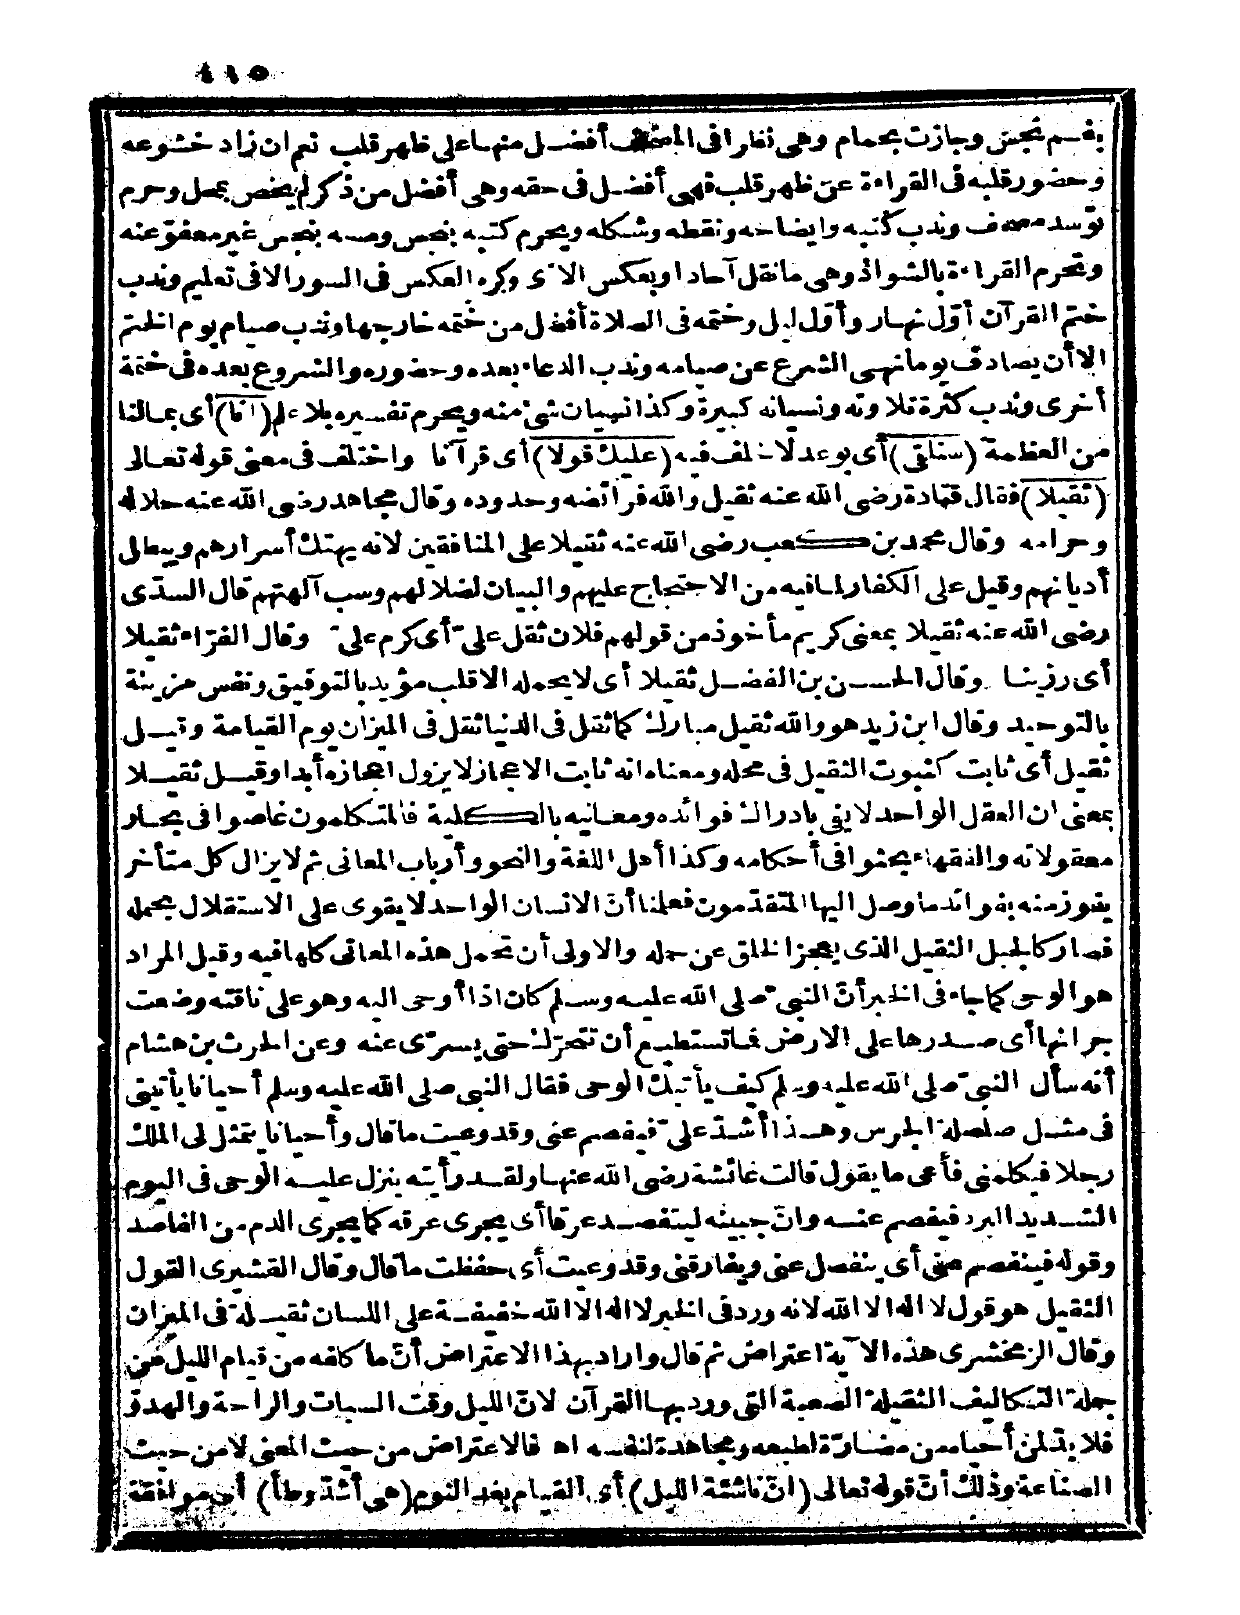 ٤١٥
بفم نجس وجازت بحمام وهى نظرا فى المصحف أفضل منها على ظهر قلب نعم ان زاد خشوعه
وحضور قلبه فى القراءة عن ظهر قلب فهى أفضل فى حقه وهى أفضل من ذكر لم يخص بمحل وحرم
توسد مصحف وندب كتبه وايضاحه ونقطه وشكله ويحرم كتبه بنجس ومسه بنجس غير معفو عنه
وتحرم القراءة بالشواذ وهى ما نقل آحادا وبعكس الآى وكره العكس فى السور الا فى تعليم وندب
ختم القرآن أوّل نهار وأوّل ليل وختمه فى الصلاة أفضل من ختمه خارجها وندب صيام يوم الختم
الا أن يصادف يوما نهى الشرع عن صيامه وندب الدعاء بعده وحضوره والشروع بعده فى ختمة
أخرى وندب كثرة تلاوته ونسيانه كبيرة وكذا نسيان شئ منه ويحرم تفسيره بلا علم (انا) أى بما لنا
من العظمة (سنلقى) أى بوعد لا خلف فيه (عليك قولا) أى قرآنا واختلف فى معنى قوله تعالى
(ثقيلا) فقال قتادة رضى الله عنه ثقيل والله فرائضه وحدوده وقال مجاهد رضى الله عنه حلاله
وحرامه وقال محمد بن كعب رضى الله عنه ثقيلا على المنافقين لانه يهتك أسرارهم ويبطل
أديانهم وقيل على الكفار لما فيه من الاحتجاج عليهم والبيان لضلالهم وسب آلهتهم قال السدّى
رضى الله عنه ثقيلا بمعنى كريم مأخوذ من قولهم فلان ثقل علىّ أى كرم علىّ وقال الفرّاء ثقيلا
أى رزينا وقال الحسن بن الفضل ثقيلا أى لا يحمله الا قلب مؤيد بالتوفيق ونفس مزينة
بالتوحيد وقال ابن زيد هو والله ثقيل مبارك كما ثقل فى الدنيا ثقل فى الميزان يوم القيامة وقيل
ثقيل أى ثابت كثبوت الثقيل فى محله ومعناه انه ثابت الاعجاز لا يزول اعجازه أبدا وقيل ثقيلا
بمعنى ان العقل الواحد لا يفى بادراك فوائده ومعانيه بالكلية فالمتكلمون غاصوا فى بحار
معقولاته والفقهاء بحثوا فى أحكامه وكذا أهل اللغة والنحو وأرباب المعانى ثم لا يزال كل متأخر
يفوز منه بفوائد ما وصل اليها المتقدّمون فعلمنا أنّ الانسان الواحد لا يقوى على الاستقلال بحمله
فصار كالجبل الثقيل الذى يعجز الخلق عن حمله والاولى أن تحمل هذه المعانى كلها فيه وقيل المراد
هو الوحى كما جاء فى الخبر أنّ النبىّ صلى الله عليه وسلم كان اذا أوحى اليه وهو على ناقته وضعت
جرانها أى صدرها على الارض فما تستطيع أن تتحرّك حتى يسرّى عنه وعن الحرث بن هشام
أنه سأل النبىّ صلى الله عليه وسلم كيف يأتيك الوحى فقال النبى صلى الله عليه وسلم أحيانا يأتينى
فى مثل صلصلة الجرس وهذا أشدّ علىّ فيفصم عنى وقد وعيت ما قال وأحيانا يتمثل لى الملك
رجلا فيكلمنى فأعى ما يقول قالت عائشة رضى الله عنها ولقد رأيته ينزل عليه الوحى فى اليوم
الشديد البرد فيفصم عنه وانّ جبينه ليتفصد عرقا أى يجرى عرقه كما يجرى الدم من الفاصد
وقوله فينفصم عنى أى ينفصل عنى ويفارقنى وقد وعيت أى حفظت ما قال وقال القشيرى القول
الثقيل هو قول لا اله الا الله لانه ورد فى الخبر لا اله الا الله خفيفة على اللسان ثقيلة فى الميزان
وقال الزمخشرى هذه الآية اعتراض ثم قال وأراد بهذا الاعتراض أنّ ما كلفه من قيام الليل من
جملة التكاليف الثقيلة الصعبة التى ورد بها القرآن لانّ الليل وقت السبات والراحة والهدوّ
فلا بدّ لمن أحياه من مضارّة لطبعه ومجاهدة لنفسه اه فالاعتراض من حيث المعنى لا من حيث
الصناعة وذلك أنّ قوله تعالى (انّ ناشئة الليل) أى القيام بعد النوم (هى أشدّ وطأ) أى موافقة